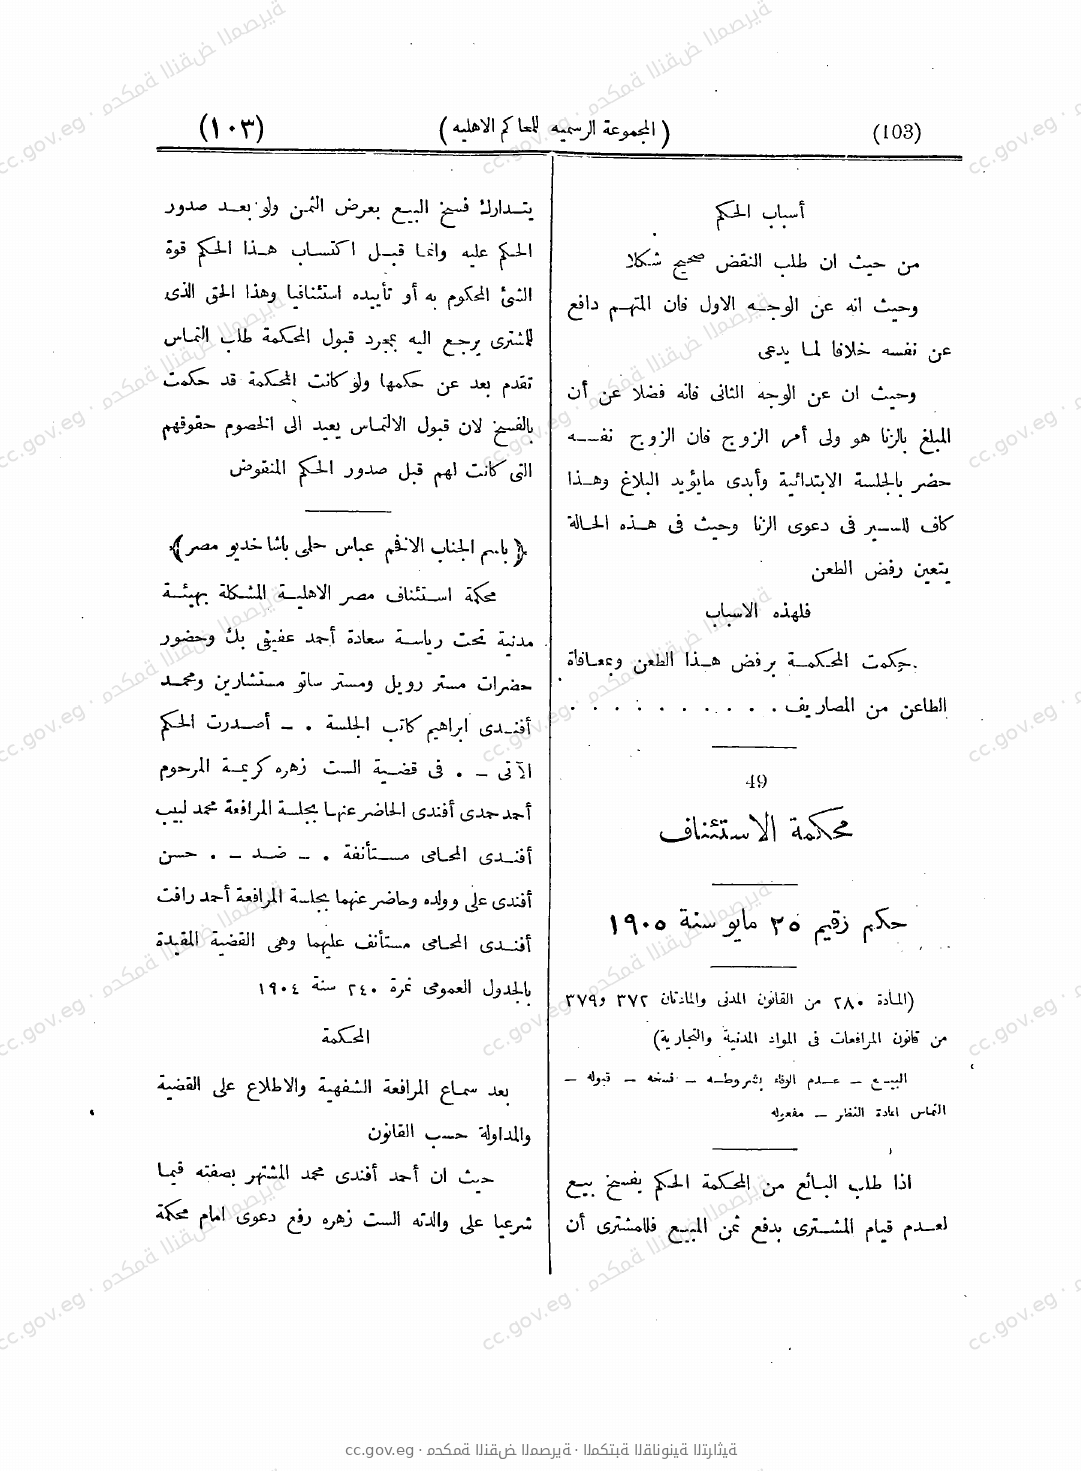 (103)
( المجموعة الرسميه للمحاكم الاهليه )
(١٠٣)
أسباب الحكم
من حيث ان طلب النقض صحيح شكلا
وحيث انه عن الوجـه الاول فان المتهـم دافع
عن نفسه خلافا لمـا يدعى
وحيث ان عن الوجه الثانى فانه فضلا عن أن
المبلغ بالزنا هو ولى أمر الزوج فان الزوج نفســه
حضر بالجلسة الابتدائية وأبدى مايؤيد البلاغ وهـذا
كاف للســير فى دعوى الزنا وحيث فى هـذه الحالة
يتعين رفض الطعن
فلهذه الاسباب
حكمت المحكمـة برفض هـذا الطعن وبمعـافاة
الطاعن من المصاريف . . . . . . . . . .
49
محكمة الاستئناف
حكم رقيم ٢٥ مايو سنة ١٩٠٥
(المـادة ٢٨٠ من القانون المدنى والمادتان ٣٧٢ و٣٧٩
من قانون المرافعات فى المواد المدنية والتجارية)
البيـع – عـدم الوفاء بشروطـه – فسخه – قبوله –
التماس اعادة النظر – مفعوله
اذا طلب البـائع من المحكمة الحكم بفسخ بيع
لعـدم قيام المشـترى بدفع ثمن المبيع فللمشترى أن
يتـدارك فسخ البيع بعرض الثمـن ولو بعـد صدور
الحكم عليه وانمـا قبـل اكتسـاب هـذا الحكم قوة
الشئ المحكوم به أو تأييده استئنافيا وهذا الحق الذى
للمشترى يرجع اليه بمجرد قبول المحكمة طلب التماس
تقدم بعد عن حكمها ولو كانت المحكمة قد حكمت
بالفسخ لان قبول الالتمـاس يعيد الى الخصوم حقوقهم
التى كانت لهم قبل صدور الحكم المنقوض
﴿ باسم الجناب الافخم عباس حلمى باشا خديو مصر ﴾
محكمة استـئناف مصر الاهليـة المشكلة بهيئـة
مدنية تحت رياسـة سعادة أحمد عفيفى بك وحضور
حضرات مستر رويل ومستر ساتو مستشارين ومحمـد
أفنـدى ابراهيم كاتب الجلسة . – أصـدرت الحكم
الآتى – . فى قضـية الست زهره كريمـة المرحوم
أحمد حمدى أفندى الحاضر عنهـا بجلسـة المرافعة محمد لبيب
أفنـدى المحامى مسـتأنفة . – ضـد – . حسن
أفندى على وولده وحاضر عنهما بجلسـة المرافعة أحمد رافت
أفنـدى المحـامى مستأنف عليهما وهى القضية المقيدة
بالجدول العمومى نمرة ٢٤٠ سنة ١٩٠٤
المحكمة
بعد سمـاع المرافعة الشفهية والاطلاع على القضية
والمداولة حسب القانون
حيث ان أحمد أفندى محمد المشتهر بصفته قيمـا
شرعيا على والدته الست زهره رفع دعوى امام محكمة
cc.gov.eg · محكمة النقض المصرية · المكتبة القانونية التراثية